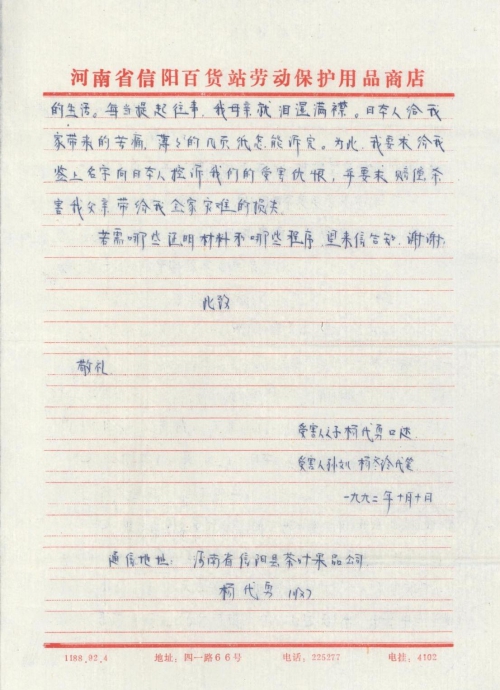 河南省信阳百货站劳动保护用品商店
的生活。每当提起往事，我母亲就泪湿满襟。日本人给我
家带来的苦痛，薄薄的几页纸怎能诉完。为此，我要求给我
签上名字向日本人控诉我们的受害仇恨，并要求赔偿杀
害我父亲带给我全家灾难的损失。
若需哪些证明材料和哪些程序，望来信告知，谢谢。
此致
敬礼
受害人之子 柯代勇口述
受害人孙儿 柯 代笔
一九九二年十月十日
通信地址：河南省信阳县茶叶果品公司
柯代勇
1188.92.4 地址：四一路66号 电话：225277 电挂：4102